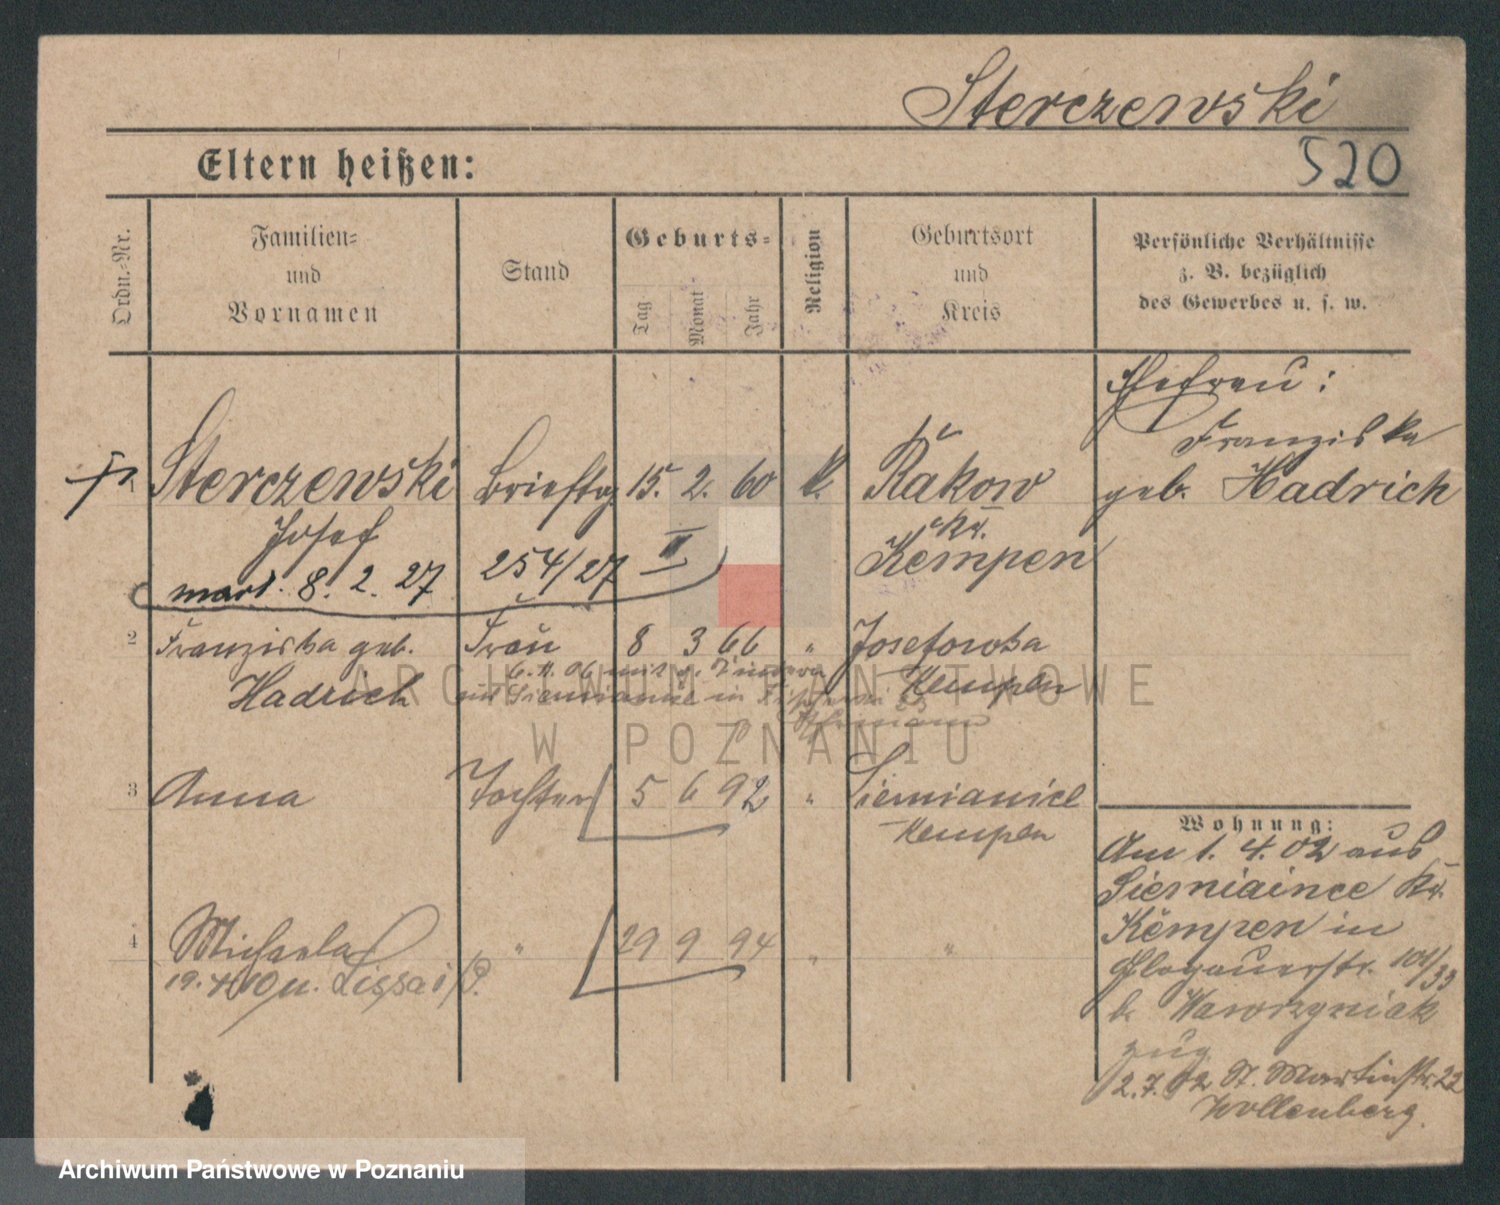 Sterczewski
Eltern heißen:
520
Ordn.-Nr.
Familien-
und
Vornamen
Stand
Geburts-
Tag
Monat
Jahr
Religion
Geburtsort
und
Kreis
Persönliche Verhältnisse
z. B. bezüglich
des Gewerbes u. s. w.
Ehefrau:
Franziska
geb. Hadrich
Sterczewski Brieftrg. 15. 2. 60 k. Rakow
Josef Kr.
8. 2. 27 254/27 II Kempen
2 Franziska geb. Frau 8 3 66 " Josefowka
Hadrich Kempen
6. 11. 06 mit
in
3 Anna Tochter 5 6 92 " Siemianice
Kempen
4 Michaela " 29 9 94 " "
19. 4. 10 n. Lissa i/P.
Wohnung:
Am 1. 4. 02 aus
Kr.
Kempen in
Glogauerstr. 101/33
b. Wawrzyniak
zug
2. 7. 02 St. Martinstr. 22
Wollenberg.
ARCHIWUM PAŃSTWOWE
W POZNANIU
Archiwum Państwowe w Poznaniu